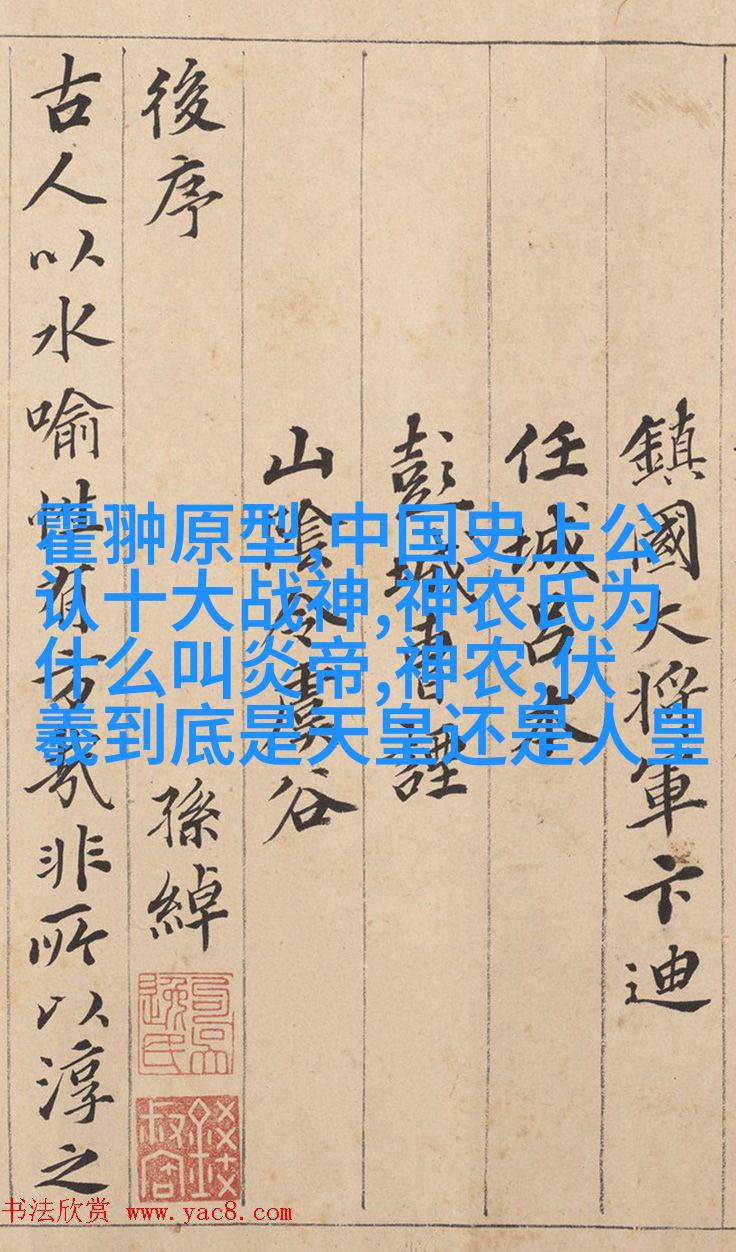 鎮國大将軍卞迪
任城吕本
彭城曹諲
山陰令虞谷
後序 孫綽
古人以水喻性有旨哉非所以淳之
霍翀原型,中国史上公
认十大战神,神农氏为
什么叫炎帝,神农,伏
羲到底是天皇还是人皇
书法欣赏 www.yac8.com